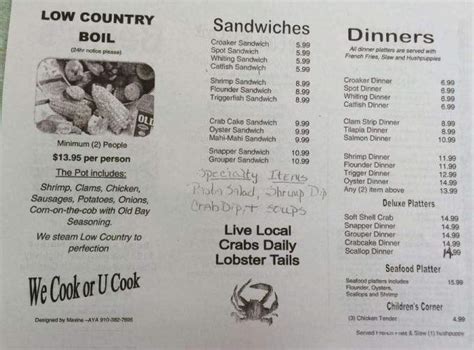 LOW COUNTRY
BOIL
(24hr notice please)
OLD
Minimum (2) People
$13.95 per person
The Pot includes:
Shrimp, Clams, Chicken,
Sausages, Potatoes, Onions,
Corn-on-the-cob with Old Bay
Seasoning.
We steam Low Country to
perfection
We Cook or U Cook
Designed by Maxine -AYA 910-382-7695
Sandwiches
Croaker Sandwich 5.99
Spot Sandwich 5.99
Whiting Sandwich 5.99
Catfish Sandwich 5.99
Shrimp Sandwich 8.99
Flounder Sandwich 8.99
Triggerfish Sandwich 8.99
Crab Cake Sandwich 9.99
Oyster Sandwich 9.99
Mahi-Mahi Sandwich 9.99
Snapper Sandwich 10.99
Grouper Sandwich 10.99
Specialty Items
Pasta Salad, Shrimp Dip
Crab Dip, + soups
Live Local
Crabs Daily
Lobster Tails
Dinners
All dinner platters are served with
French Fries, Slaw and Hushpuppies
Croaker Dinner 8.99
Spot Dinner 8.99
Whiting Dinner 8.99
Catfish Dinner 8.99
Clam Strip Dinner
Tilapia Dinner
Salmon Dinner
Shrimp Dinner 11.99
Flounder Dinner 11.99
Trigger Dinner 12.99
Oyster Dinner
Any (2) item above 13.99
Deluxe Platters
Soft Shell Crab 14.99
Snapper Dinner 14.99
Grouper Dinner 14.99
Crabcake Dinner 14.99
Scallop Dinner
Seafood Platter
Seafood platters includes 15.99
Flounder, Oysters,
Scallops and Shrimp
Children's Corner
(3) Chicken Tender 4.99
Served French Fries & Slaw (1) hushpuppy